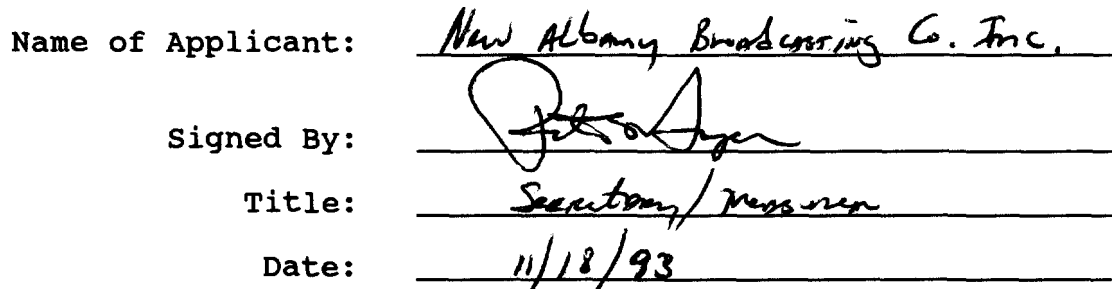 Name of Applicant: New Albany Broadcasting Co. Inc.
Signed By:
Title: Secretary/Treasurer
Date: 11/18/93